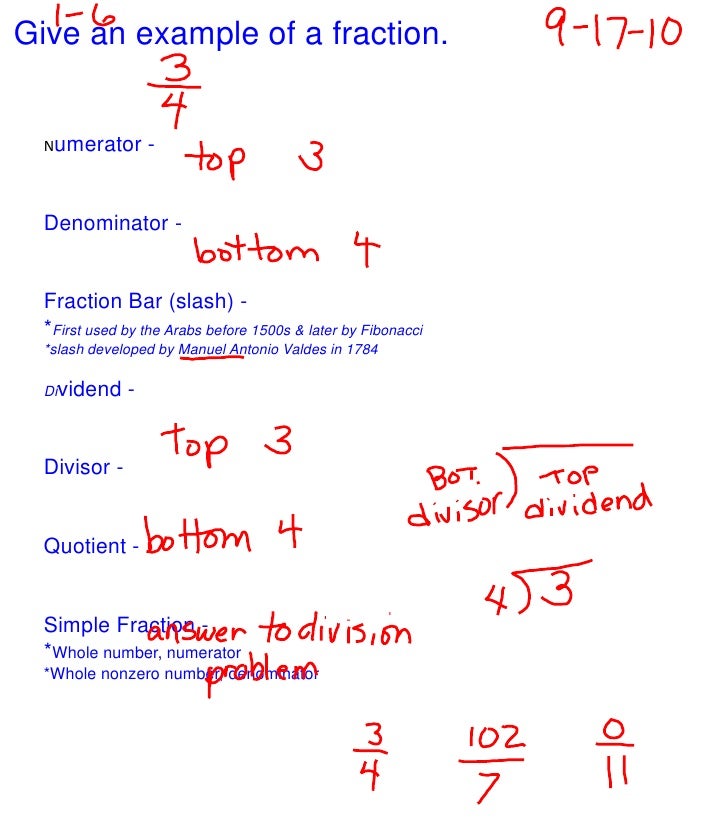 1-6
Give an example of a fraction. 9-17-10
3
4
Numerator -
top 3
Denominator -
bottom 4
Fraction Bar (slash) -
*First used by the Arabs before 1500s & later by Fibonacci
*slash developed by Manuel Antonio Valdes in 1784
DIvidend -
top 3
Divisor -
BOT. TOP
divisor dividend
Quotient - bottom 4
4 3
Simple Fraction -
answer to division
*Whole number, numerator
problem
*Whole nonzero number, denominator
3 102 0
4 7 11